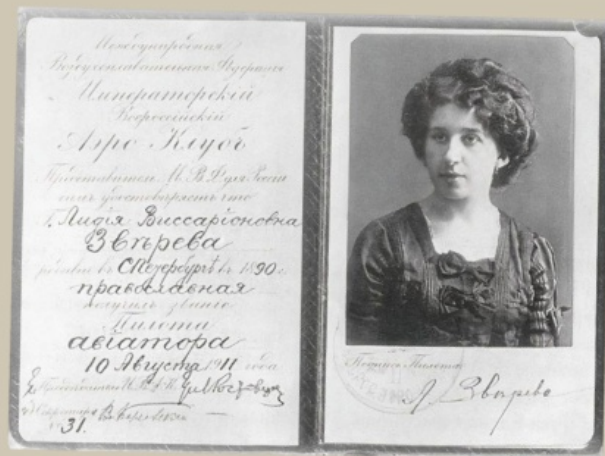 Международная
Воздухоплавательная Федерація
Императорскій
Всероссійскій
Аэро Клубъ
Представитель М. В. Ф. для Россіи
симъ удостовѣряетъ что
г. Лидія Виссаріоновна
Звѣрева
въ С Петербургѣ въ 1890 г.
православная
получилъ званіе
Пилота
авіатора
10 Августа 1911 года
№ 31.
Подпись Пилота
Л. Звѣрева